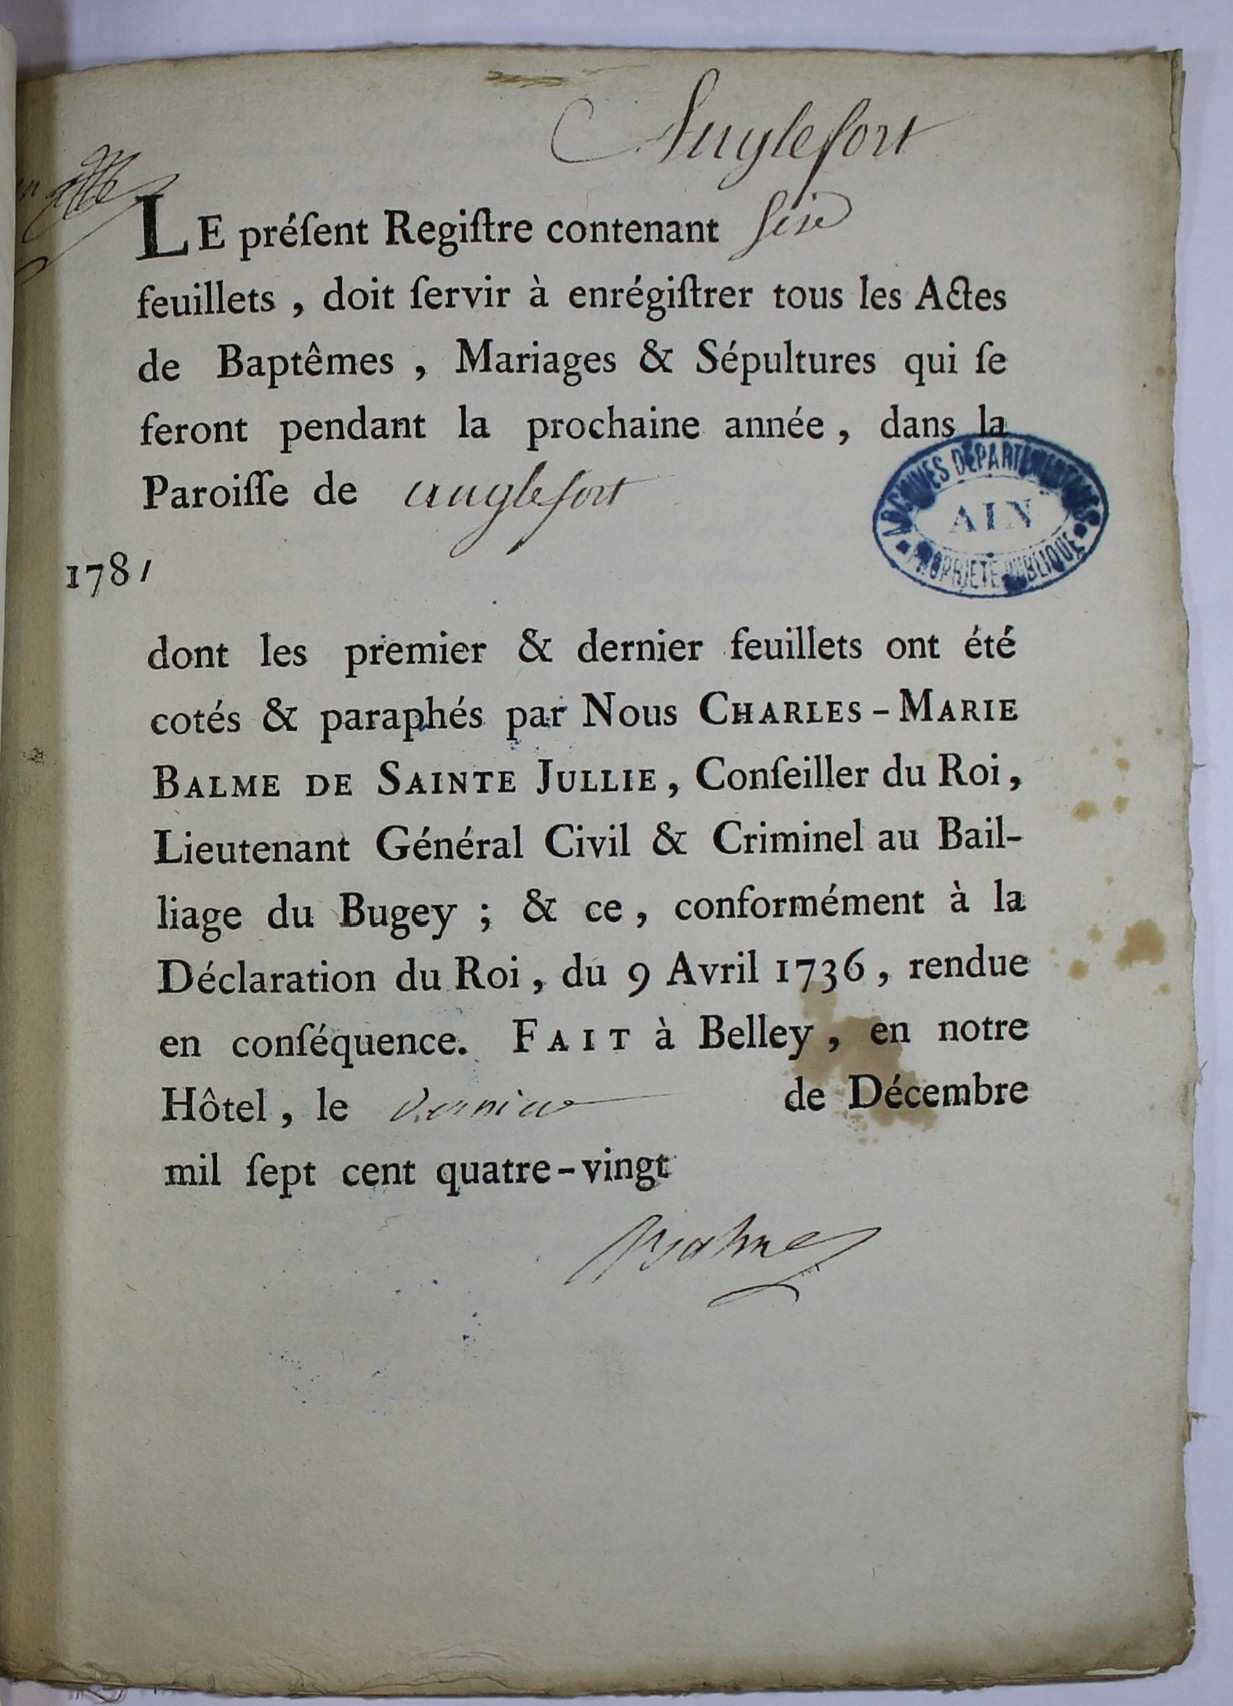 Anglefort
LE préſent Regiſtre contenant
feuillets , doit ſervir à enrégiſtrer tous les Actes
de Baptêmes , Mariages & Sépultures qui ſe
feront pendant la prochaine année , dans la
Paroiſſe de anglefort
ARCHIVES DÉPARTEMENTALES
AIN
PROPRIÉTÉ PUBLIQUE
1781
dont les premier & dernier feuillets ont été
cotés & paraphés par Nous CHARLES-MARIE
BALME DE SAINTE JULLIE , Conſeiller du Roi ,
Lieutenant Général Civil & Criminel au Bail-
liage du Bugey ; & ce , conformément à la
Déclaration du Roi , du 9 Avril 1736 , rendue
en conſéquence. FAIT à Belley , en notre
Hôtel , le dernier de Décembre
mil ſept cent quatre-vingt
Balme